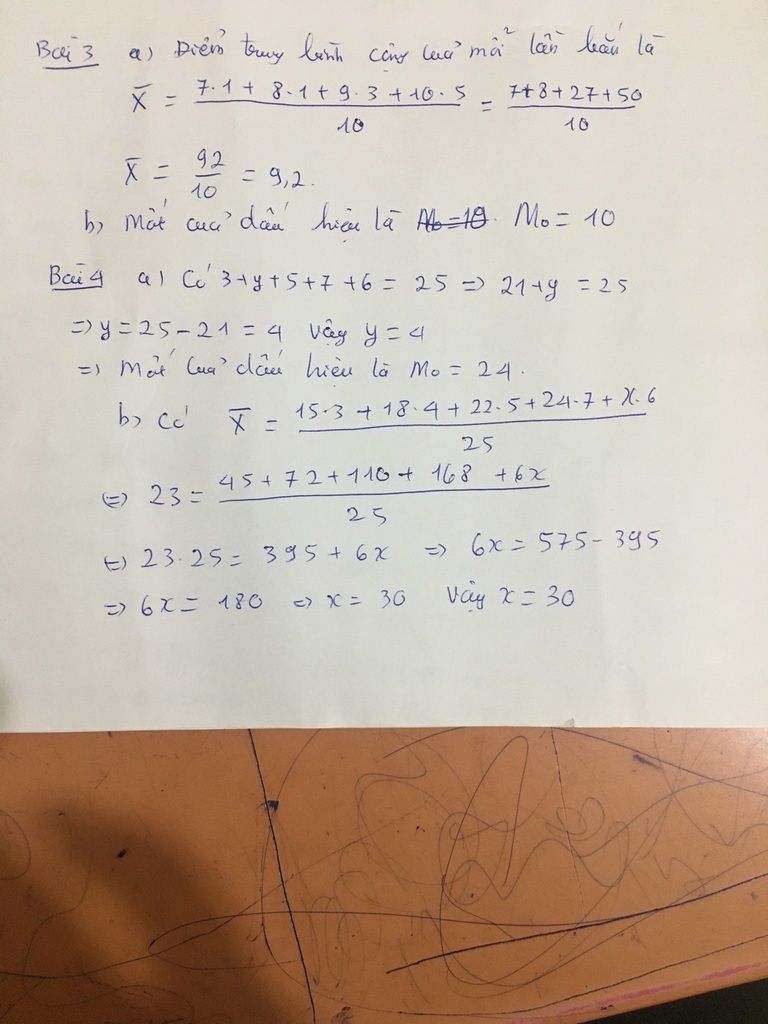 Bài 3 a) Điểm trung bình cộng của mỗi lần bắn là
X̄ = (7.1 + 8.1 + 9.3 + 10.5)/10 = (7+8+27+50)/10
X̄ = 92/10 = 9,2.
b, Mốt của dấu hiệu là M₀=10. M₀ = 10
Bài 4 a) Có 3+y+5+7+6 = 25 => 21+y = 25
=> y = 25 - 21 = 4 Vậy y = 4
=> Mốt của dấu hiệu là M₀ = 24.
b> Có X̄ = (15.3 + 18.4 + 22.5 + 24.7 + x.6)/25
(=) 23 = (45 + 72 + 110 + 168 + 6x)/25
(=) 23.25 = 395 + 6x => 6x = 575 - 395
=> 6x = 180 => x = 30 Vậy x = 30